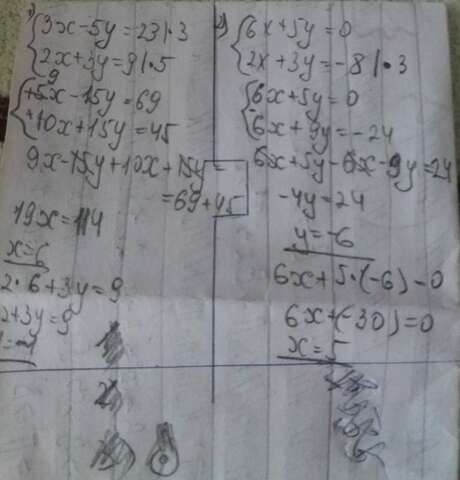 1) {3x-5y=23 |·3
{2x+3y=9 |·5
{9x-15y=69
{10x+15y=45
9x-15y+10x+15y=
=69+45
19x=114
x=6
2·6+3y=9
2+3y=9
=-1
2) {6x+5y=0
{2x+3y=-8 |·3
{6x+5y=0
{6x+9y=-24
6x+5y-6x-9y=24
-4y=24
y=-6
6x+5·(-6)=0
6x+(-30)=0
x=5